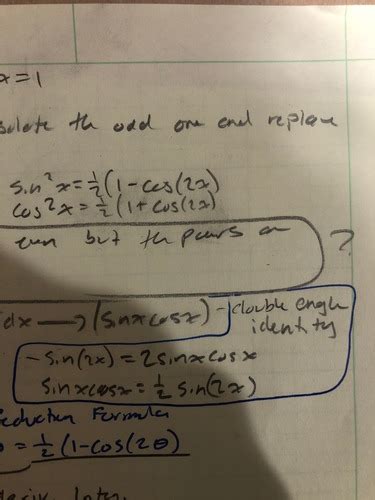 x=1
isolate the odd one and replace
sin²x=½(1-cos(2x)
cos²x=½(1+cos(2x)
even but the powers on
?
dx → (sinxcosx) -double angle
identity
-sin(2x) = 2sinxcosx
sinxcosx=½ sin(2x)
reduction Formula
=½(1-cos(2θ)